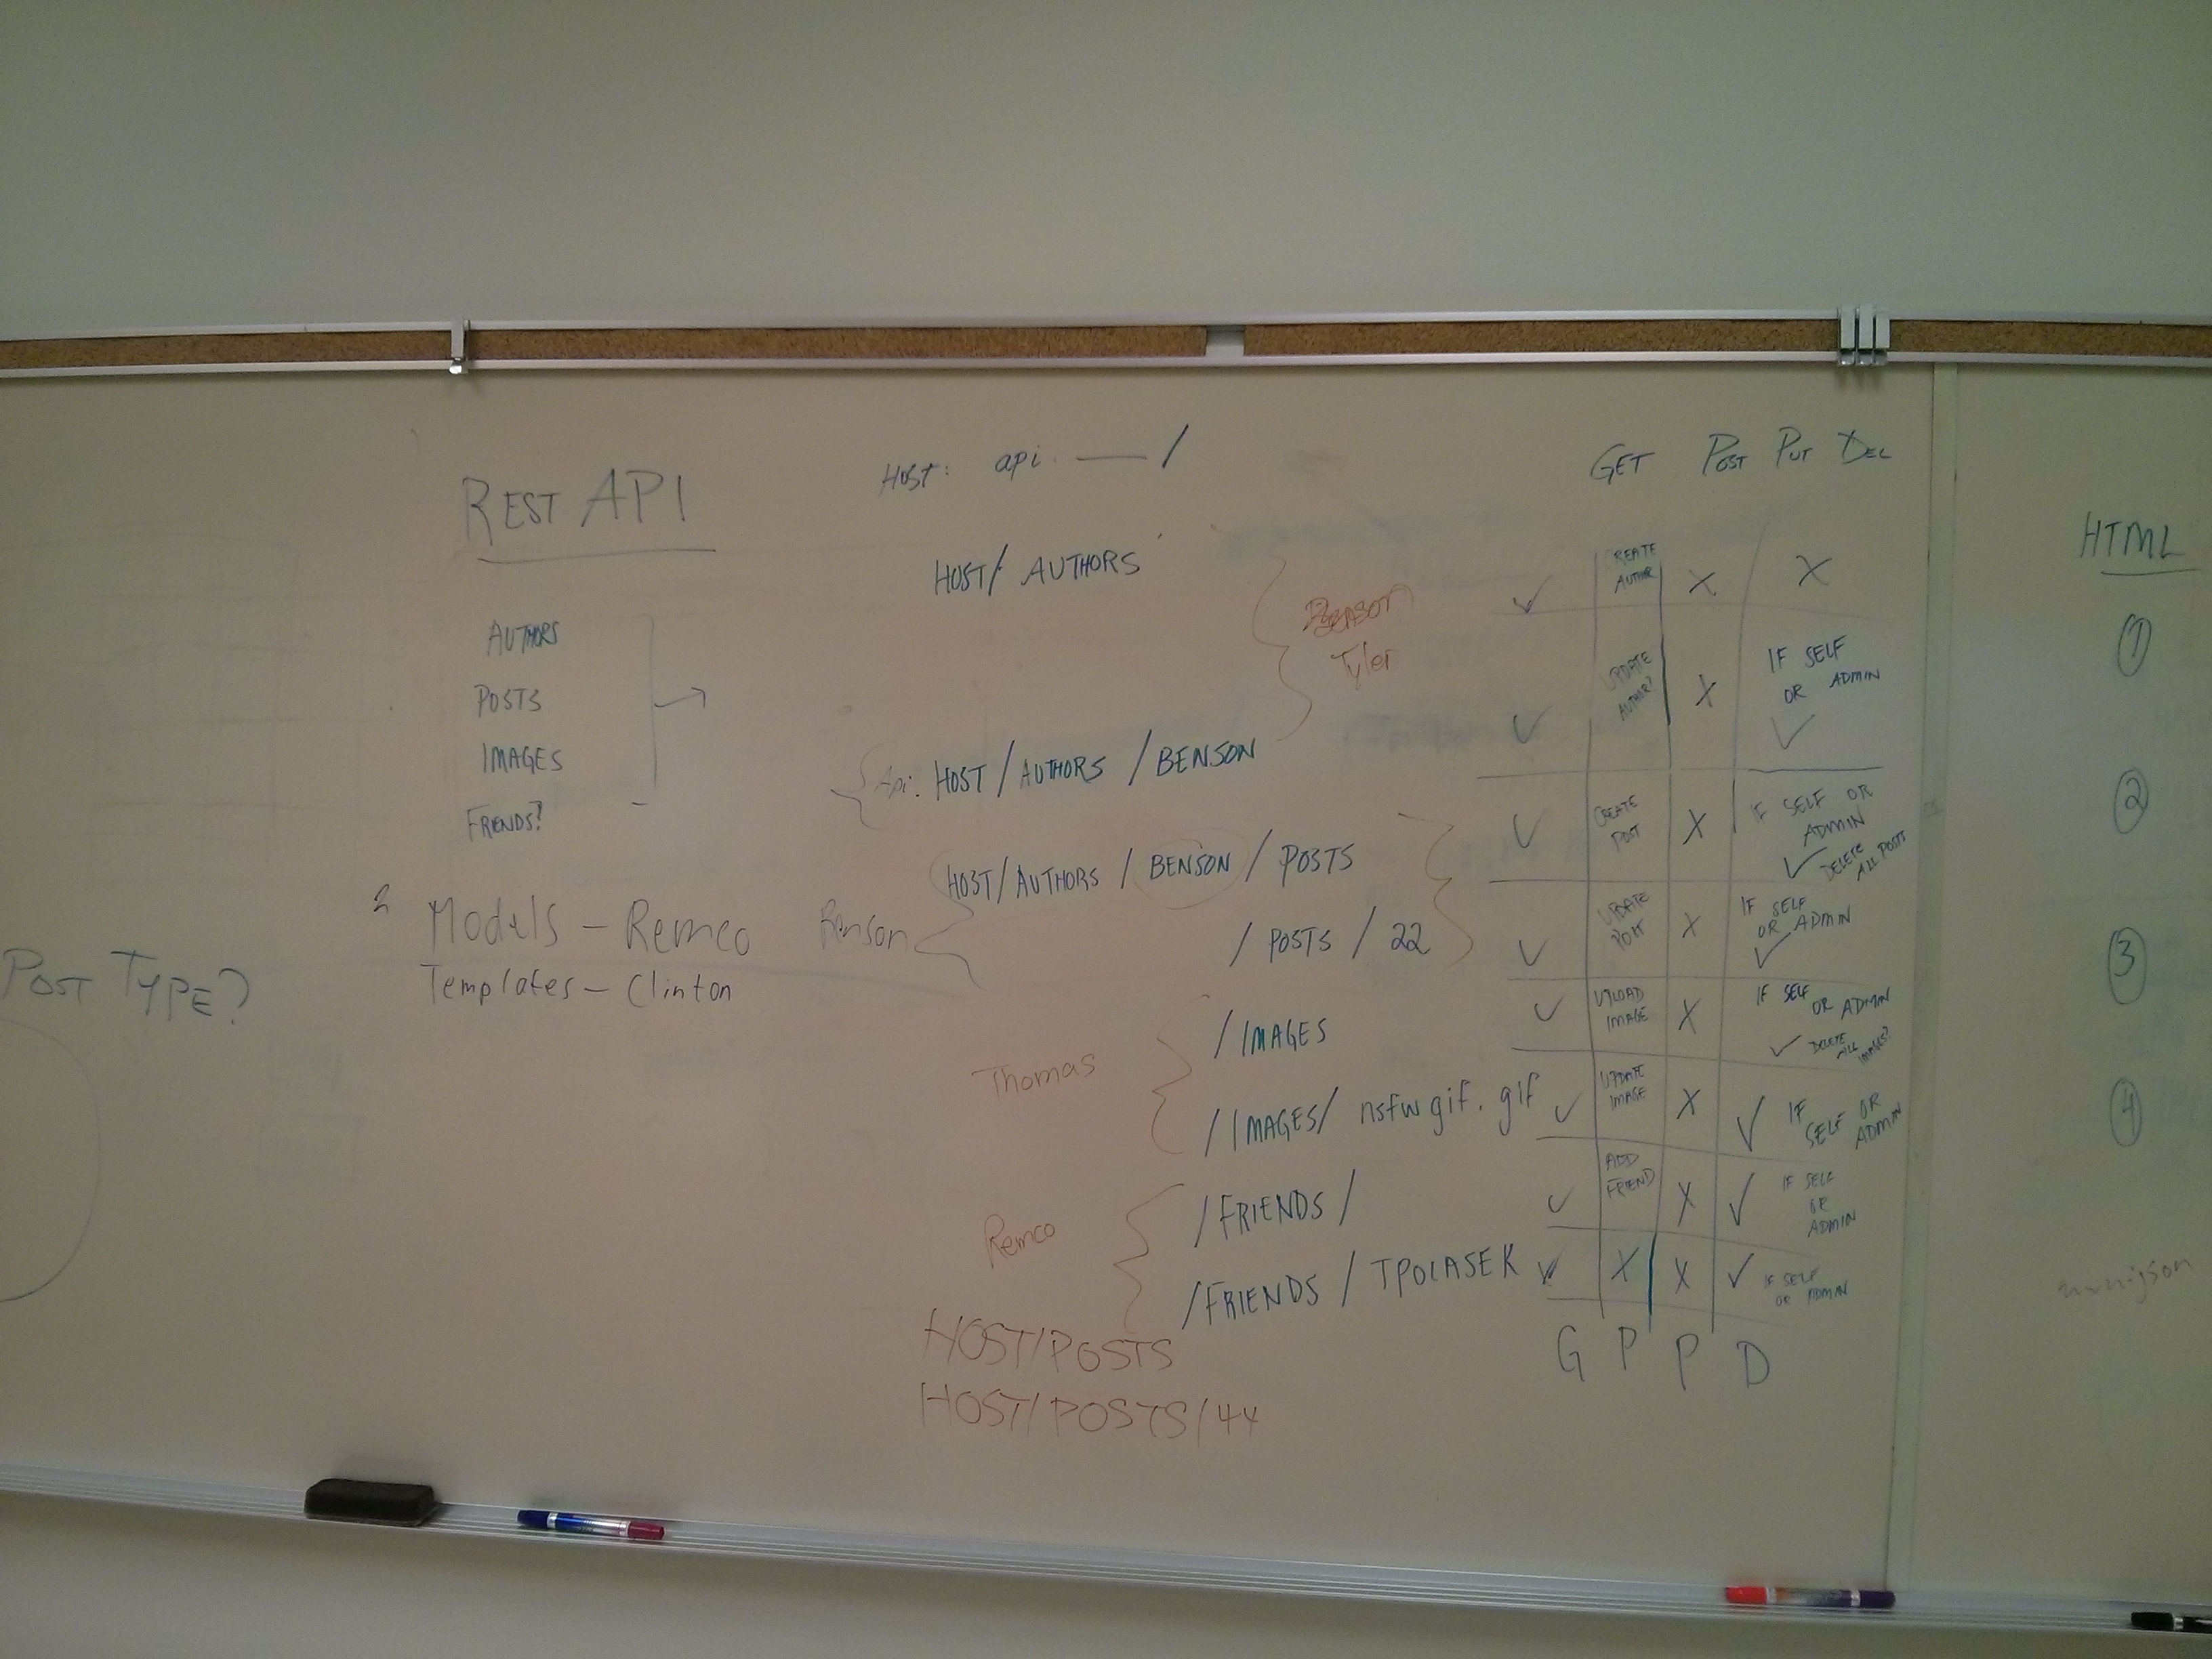 REST API
AUTHORS
POSTS
IMAGES
FRIENDS?
Models - Remco
Templates - Clinton
POST TYPE?
HOST: api. /
HOST/ AUTHORS
Tyler
Api: HOST / AUTHORS / BENSON
HOST/ AUTHORS / BENSON / POSTS
Benson
/ POSTS / 22
/ IMAGES
Thomas
/ IMAGES/ nsfwgif.gif
/ FRIENDS /
Remco
/FRIENDS / TPOLASEK
HOST/POSTS
HOST/POSTS/44
GET POST PUT DEL
✓ CREATE AUTHOR X X
✓ UPDATE AUTHOR? X IF SELF OR ADMIN ✓
✓ CREATE POST X IF SELF OR ADMIN ✓ DELETE ALL POSTS
✓ UPDATE POST X IF SELF OR ADMIN ✓
✓ UPLOAD IMAGE X IF SELF OR ADMIN ✓ DELETE ALL IMAGES?
✓ UPDATE IMAGE X ✓ IF SELF OR ADMIN
✓ ADD FRIEND X ✓ IF SELF OR ADMIN
✓ X X ✓ IF SELF OR ADMIN
G P P D
HTML
1
2
3
4